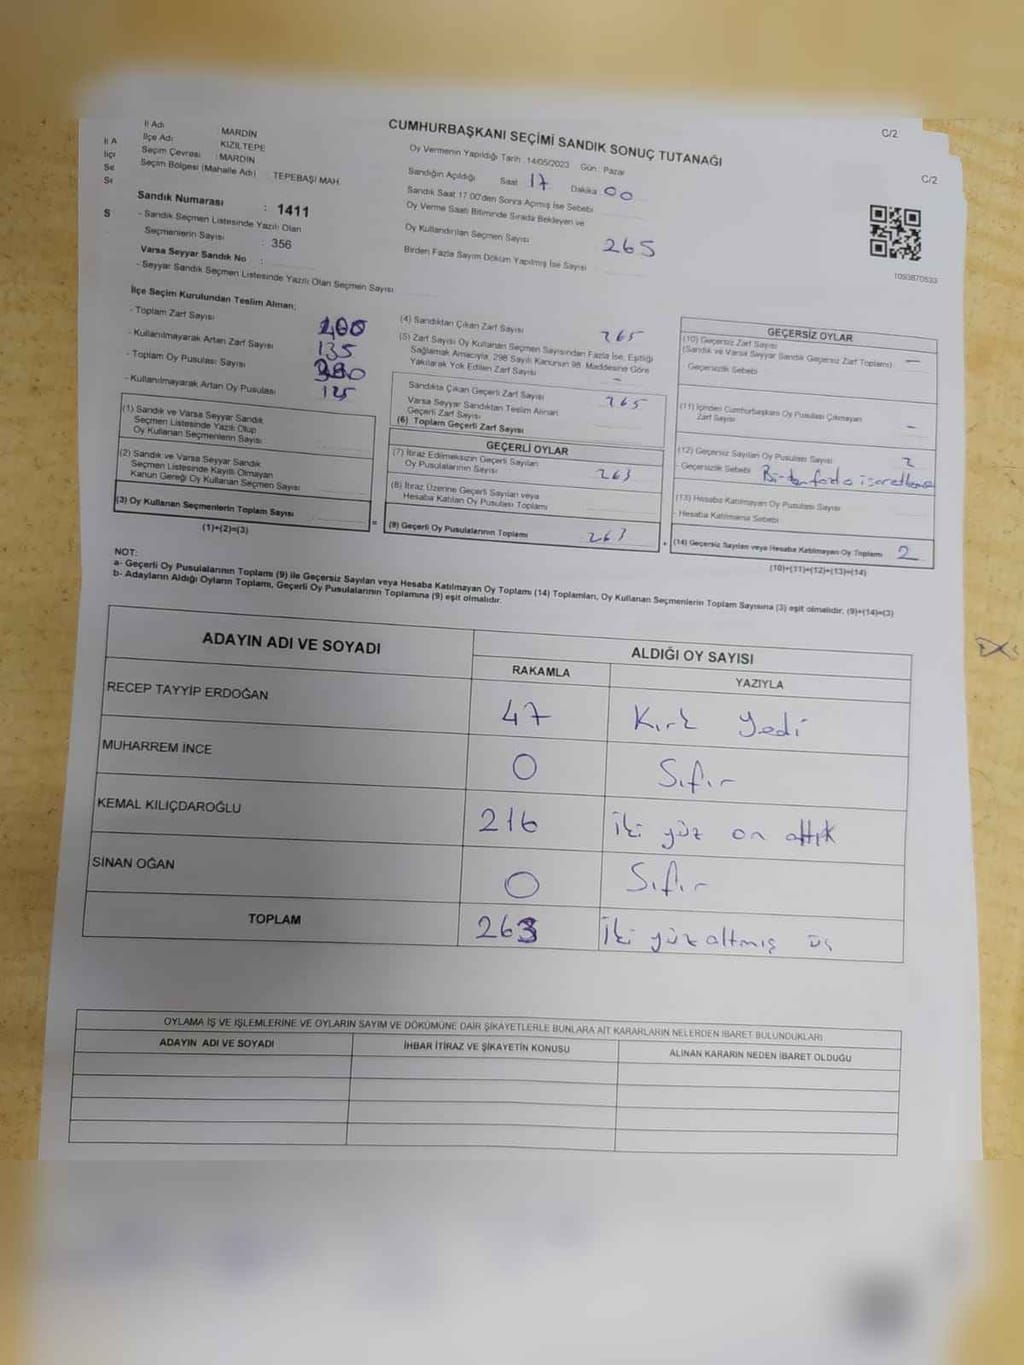 C/2
C/2
CUMHURBAŞKANI SEÇİMİ SANDIK SONUÇ TUTANAĞI
İl Adı MARDİN
İlçe Adı KIZILTEPE
Seçim Çevresi : MARDİN
Seçim Bölgesi (Mahalle Adı) : TEPEBAŞI MAH.
Sandık Numarası : 1411
- Sandık Seçmen Listesinde Yazılı Olan
Seçmenlerin Sayısı : 356
Varsa Seyyar Sandık No :
- Seyyar Sandık Seçmen Listesinde Yazılı Olan Seçmen Sayısı
Oy Vermenin Yapıldığı Tarih : 14/05/2023 Gün : Pazar
Sandığın Açıldığı Saat 17 Dakika 00
Sandık Saat 17:00'den Sonra Açılmış İse Sebebi
Oy Verme Saati Bitiminde Sırada Bekleyen ve
Oy Kullandırılan Seçmen Sayısı 265
Birden Fazla Sayım Döküm Yapılmış İse Sayısı
1093870533
İlçe Seçim Kurulundan Teslim Alınan;
- Toplam Zarf Sayısı 400
- Kullanılmayarak Artan Zarf Sayısı 135
- Toplam Oy Pusulası Sayısı
- Kullanılmayarak Artan Oy Pusulası 125
(1) Sandık ve Varsa Seyyar Sandık
Seçmen Listesinde Yazılı Olup
Oy Kullanan Seçmenlerin Sayısı
(2) Sandık ve Varsa Seyyar Sandık
Seçmen Listesinde Kayıtlı Olmayan
Kanun Gereği Oy Kullanan Seçmen Sayısı
(3) Oy Kullanan Seçmenlerin Toplam Sayısı
(1)+(2)=(3)
=
(4) Sandıktan Çıkan Zarf Sayısı 265
(5) Zarf Sayısı Oy Kullanan Seçmen Sayısından Fazla İse, Eşitliği
Sağlamak Amacıyla, 298 Sayılı Kanunun 98. Maddesine Göre
Yakılarak Yok Edilen Zarf Sayısı -
Sandıkta Çıkan Geçerli Zarf Sayısı 265
Varsa Seyyar Sandıktan Teslim Alınan
Geçerli Zarf Sayısı
(6) Toplam Geçerli Zarf Sayısı
GEÇERLİ OYLAR
(7) İtiraz Edilmeksizin Geçerli Sayılan
Oy Pusulalarının Sayısı 263
(8) İtiraz Üzerine Geçerli Sayılan veya
Hesaba Katılan Oy Pusulası Toplamı
(9) Geçerli Oy Pusulalarının Toplamı 263
+
GEÇERSİZ OYLAR
(10) Geçersiz Zarf Sayısı
(Sandık ve Varsa Seyyar Sandık Geçersiz Zarf Toplamı) -
Geçersizlik Sebebi
(11) İçinden Cumhurbaşkanı Oy Pusulası Çıkmayan
Zarf Sayısı -
(12) Geçersiz Sayılan Oy Pusulası Sayısı 2
- Geçersizlik Sebebi Birden fazla işaretleme
(13) Hesaba Katılmayan Oy Pusulası Sayısı
- Hesaba Katılmama Sebebi
(14) Geçersiz Sayılan veya Hesaba Katılmayan Oy Toplamı 2
(10)+(11)+(12)+(13)=(14)
NOT:
a- Geçerli Oy Pusulalarının Toplamı (9) ile Geçersiz Sayılan veya Hesaba Katılmayan Oy Toplamı (14) Toplamları, Oy Kullanan Seçmenlerin Toplam Sayısına (3) eşit olmalıdır. (9)+(14)=(3)
b- Adayların Aldığı Oyların Toplamı, Geçerli Oy Pusulalarının Toplamına (9) eşit olmalıdır.
ADAYIN ADI VE SOYADI ALDIĞI OY SAYISI
RAKAMLA YAZIYLA
RECEP TAYYİP ERDOĞAN 47 Kırk Yedi
MUHARREM İNCE 0 Sıfır
KEMAL KILIÇDAROĞLU 216 İki yüz on altı
SİNAN OĞAN 0 Sıfır
TOPLAM 263 İki yüz altmış üç
OYLAMA İŞ VE İŞLEMLERİNE VE OYLARIN SAYIM VE DÖKÜMÜNE DAİR ŞİKAYETLERLE BUNLARA AİT KARARLARIN NELERDEN İBARET BULUNDUKLARI
ADAYIN ADI VE SOYADI İHBAR İTİRAZ VE ŞİKAYETİN KONUSU ALINAN KARARIN NEDEN İBARET OLDUĞU